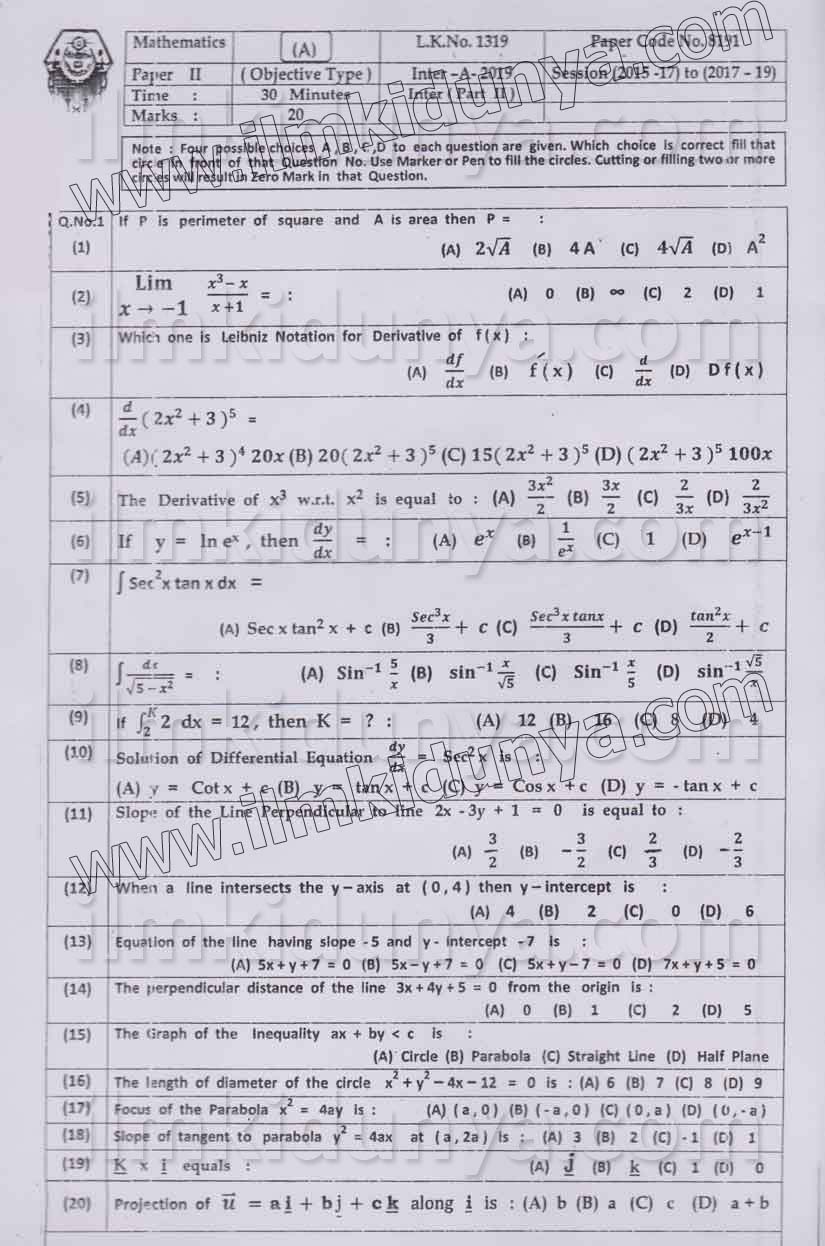 Mathematics (A) L.K.No. 1319 Paper Code No. 8191
Paper II ( Objective Type ) Inter -A- 2019 Session (2015 -17) to (2017 - 19)
Time : 30 Minutes Inter ( Part II )
Marks : 20
Note : Four possible choices A , B , C , D to each question are given. Which choice is correct fill that
circle in front of that Question No. Use Marker or Pen to fill the circles. Cutting or filling two or more
circles will result in Zero Mark in that Question.
Q.No.1 If P is perimeter of square and A is area then P = :
(1) (A) 2√A (B) 4 A (C) 4√A (D) A²
(2) Lim x → -1 (x³ - x)/(x + 1) = : (A) 0 (B) ∞ (C) 2 (D) 1
(3) Which one is Leibniz Notation for Derivative of f ( x ) :
(A) df/dx (B) f́ ( x ) (C) d/dx (D) D f ( x )
(4) d/dx ( 2x² + 3 )⁵ =
(A)( 2x² + 3 )⁴ 20x (B) 20( 2x² + 3 )⁵ (C) 15( 2x² + 3 )⁵ (D) ( 2x² + 3 )⁵ 100x
(5) The Derivative of x³ w.r.t. x² is equal to : (A) 3x²/2 (B) 3x/2 (C) 2/3x (D) 2/3x²
(6) If y = ln eˣ , then dy/dx = : (A) eˣ (B) 1/eˣ (C) 1 (D) eˣ⁻¹
(7) ∫ Sec²x tan x dx =
(A) Sec x tan² x + c (B) Sec³x/3 + c (C) Sec³x tanx/3 + c (D) tan²x/2 + c
(8) ∫ dx/√(5 - x²) = : (A) Sin⁻¹ 5/x (B) sin⁻¹ x/√5 (C) Sin⁻¹ x/5 (D) sin⁻¹ √5/x
(9) If ∫₂ᴷ 2 dx = 12, then K = ? : (A) 12 (B) 16 (C) 8 (D) 4
(10) Solution of Differential Equation dy/dx = Sec² x is :
(A) y = Cot x + c (B) y = tan x + c (C) y = Cos x + c (D) y = - tan x + c
(11) Slope of the Line Perpendicular to line 2x - 3y + 1 = 0 is equal to :
(A) 3/2 (B) - 3/2 (C) 2/3 (D) - 2/3
(12) When a line intersects the y - axis at ( 0 , 4 ) then y - intercept is :
(A) 4 (B) 2 (C) 0 (D) 6
(13) Equation of the line having slope - 5 and y - intercept - 7 is :
(A) 5x + y + 7 = 0 (B) 5x - y + 7 = 0 (C) 5x + y - 7 = 0 (D) 7x + y + 5 = 0
(14) The perpendicular distance of the line 3x + 4y + 5 = 0 from the origin is :
(A) 0 (B) 1 (C) 2 (D) 5
(15) The Graph of the Inequality ax + by < c is :
(A) Circle (B) Parabola (C) Straight Line (D) Half Plane
(16) The length of diameter of the circle x² + y² - 4x - 12 = 0 is : (A) 6 (B) 7 (C) 8 (D) 9
(17) Focus of the Parabola x² = 4ay is : (A) ( a , 0 ) (B) ( - a , 0 ) (C) ( 0 , a ) (D) ( 0 , - a )
(18) Slope of tangent to parabola y² = 4ax at ( a , 2a ) is : (A) 3 (B) 2 (C) - 1 (D) 1
(19) K x i equals : (A) j (B) k (C) 1 (D) 0
(20) Projection of u⃗ = a i + b j + c k along i is : (A) b (B) a (C) c (D) a + b
www.ilmkidunya.com
ilmkidunya.com